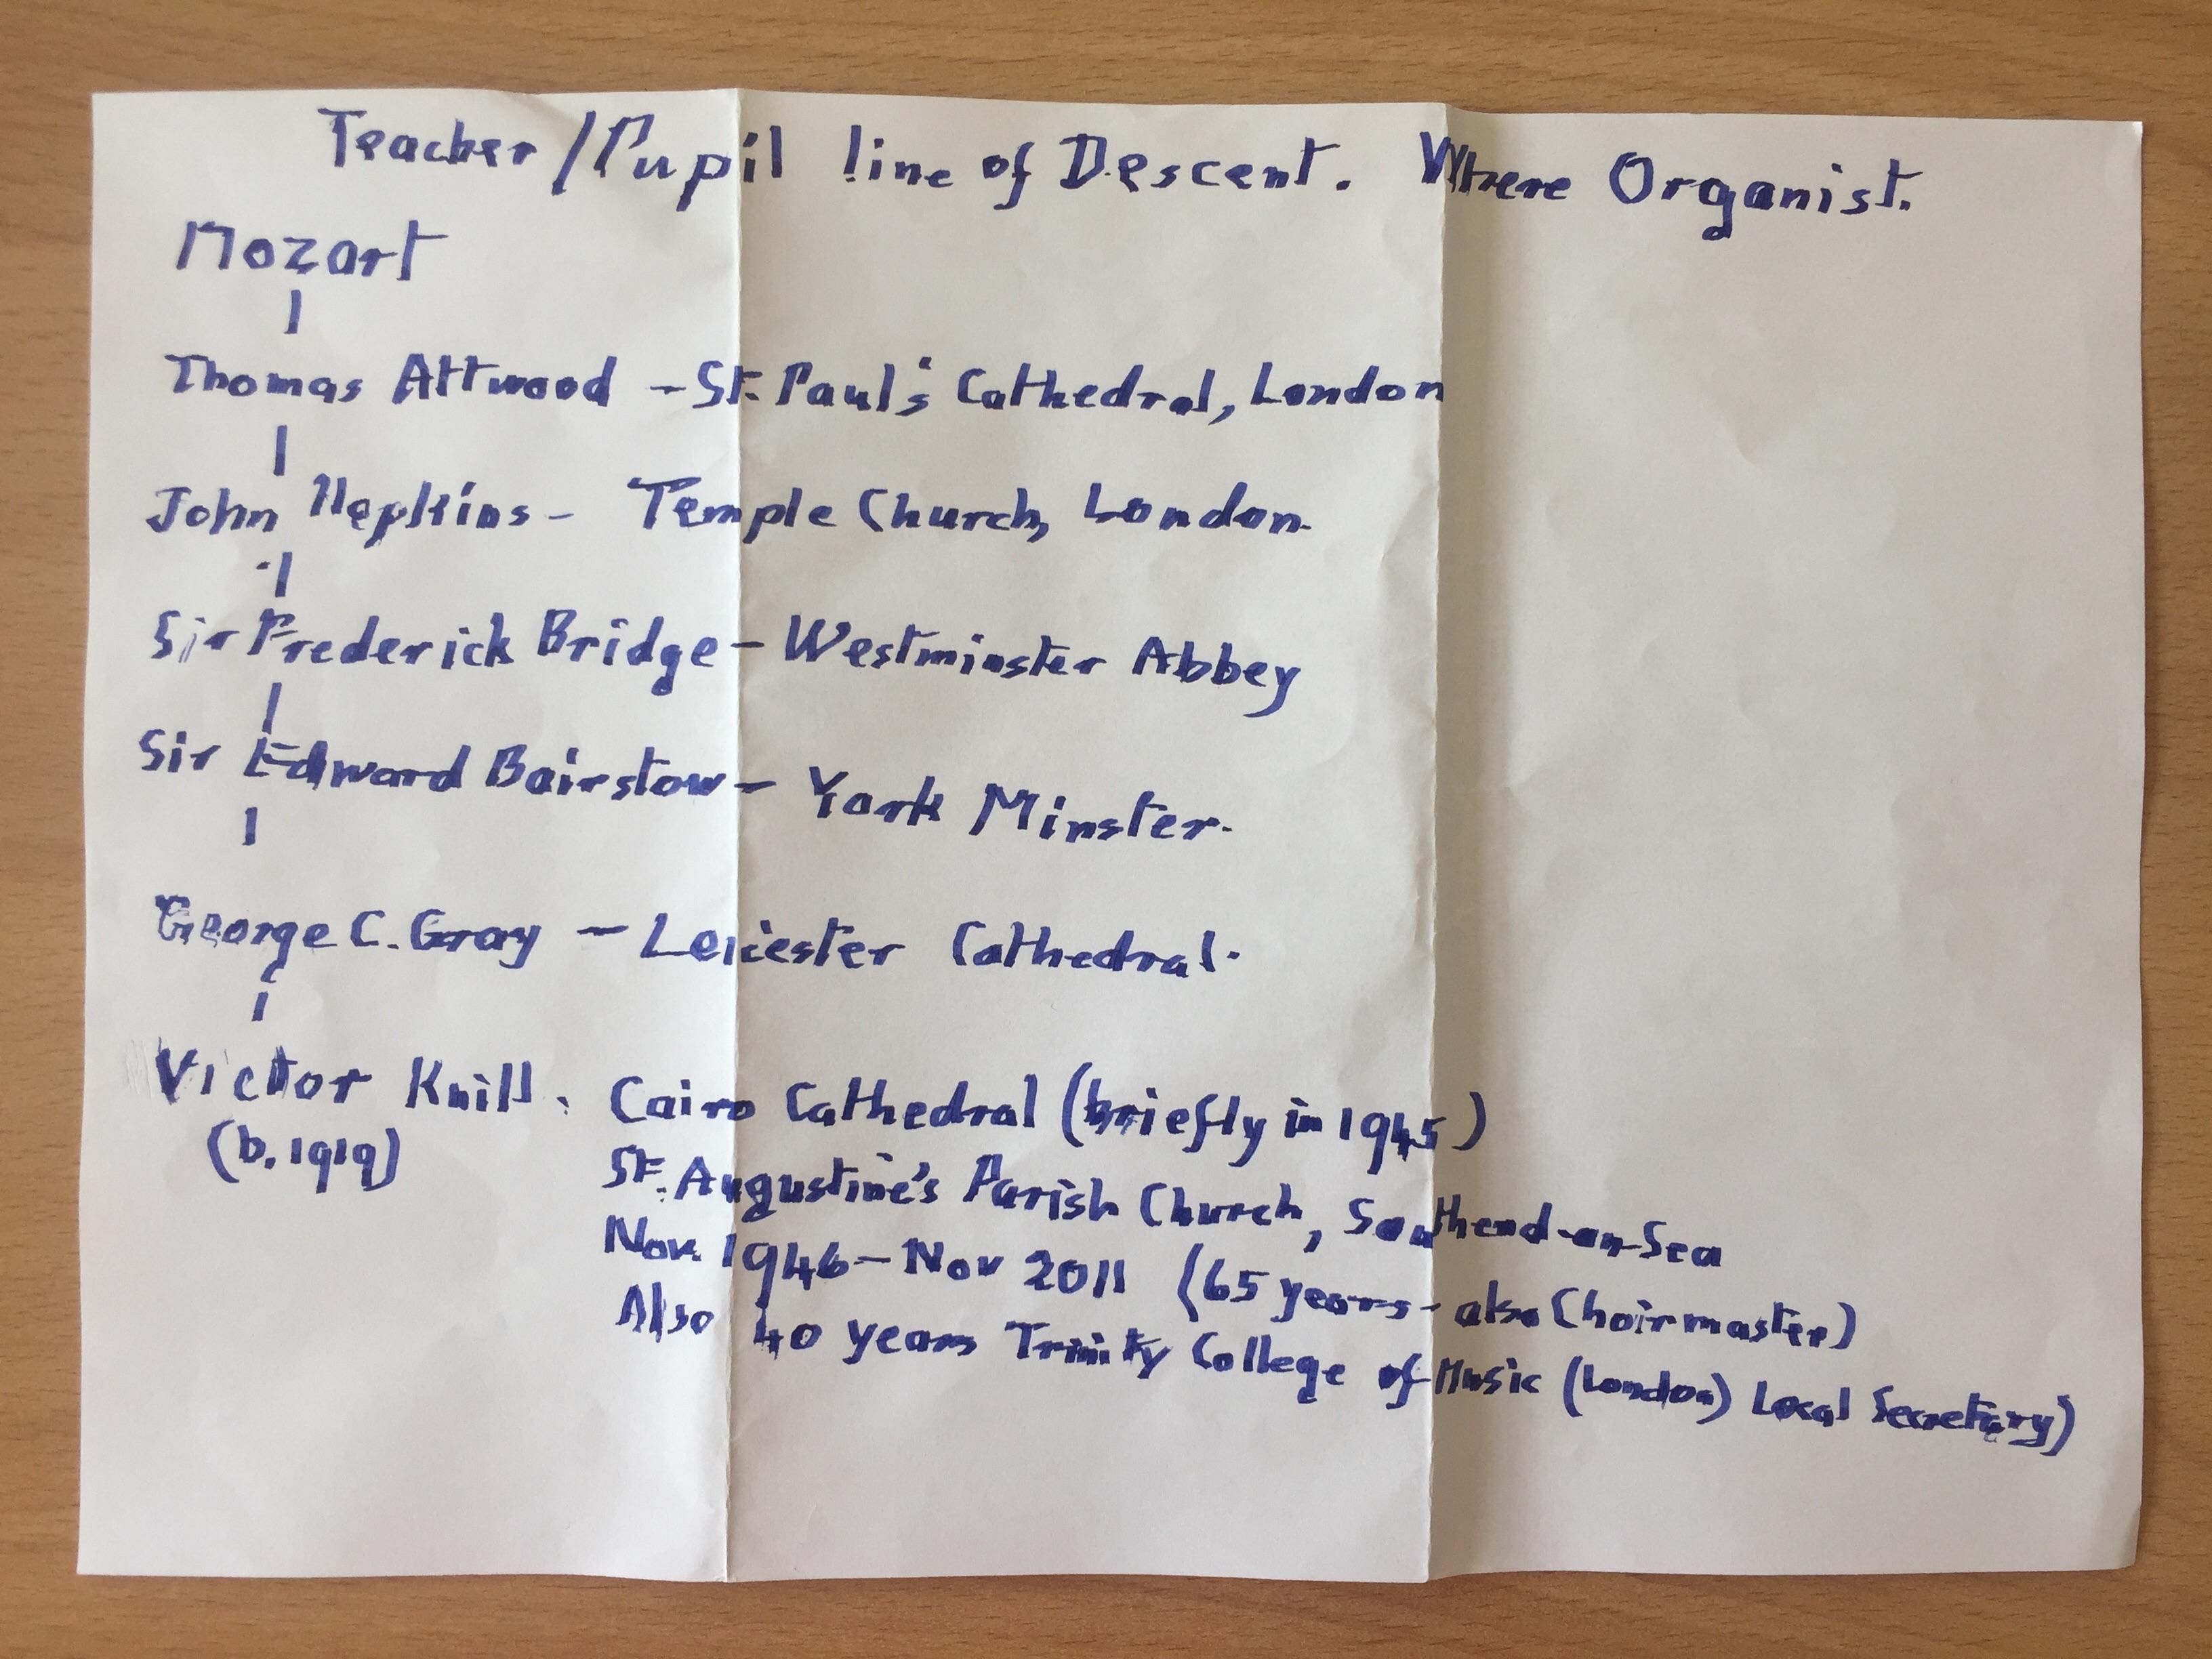 Teacher/Pupil line of Descent. Where Organist.
Mozart
Thomas Attwood - St. Paul's Cathedral, London
John Hopkins - Temple Church, London.
Sir Frederick Bridge - Westminster Abbey
Sir Edward Bairstow - York Minster.
George C. Gray - Leicester Cathedral.
Victor Knill. Cairo Cathedral (briefly in 1945)
(b. 1919)
St. Augustine's Parish Church, Southend-on-Sea
Nov. 1946 - Nov 2011 (65 years - also Choirmaster)
Also 40 years Trinity College of Music (London) Local Secretary)